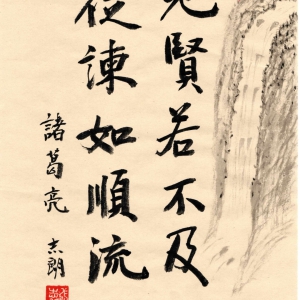 見賢若不及
從諫如順流
諸葛亮 志朗